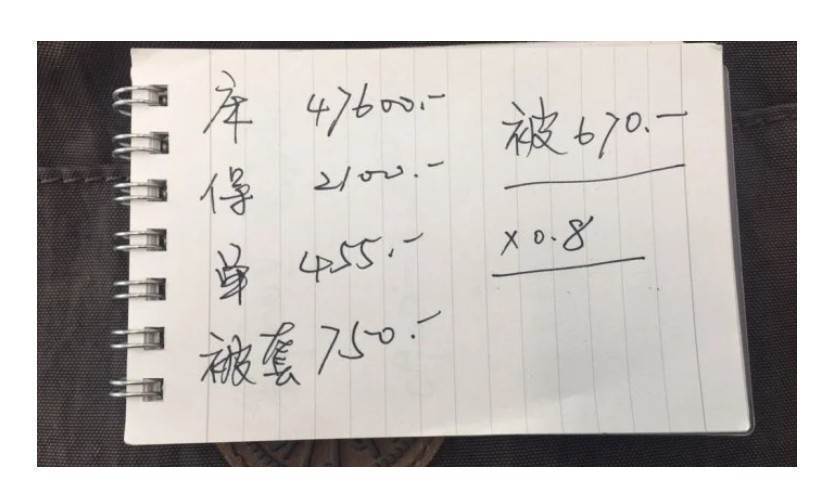 床 47600.-
保 2100.-
单 455.-
被套 750.-
被 670.-
x 0.8